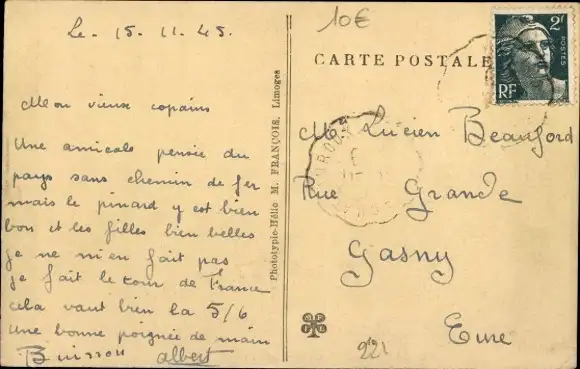 Le. 15. 11. 45.
Mon vieux copains
Une amicale pensée du
pays sans chemin de fer
mais le pinard y est bien
bon et les filles bien belles
je ne m'en fait pas
je fait le tour de France
cela vaut bien la 5/6
Une bonne poignée de main
Buisson albert
Phototypie-Hélio M. FRANÇOIS, Limoges
10€
CARTE POSTALE
2F
POSTES
RF
M. Lucien Beauford
Rue Grande
Gasny
Eure
221